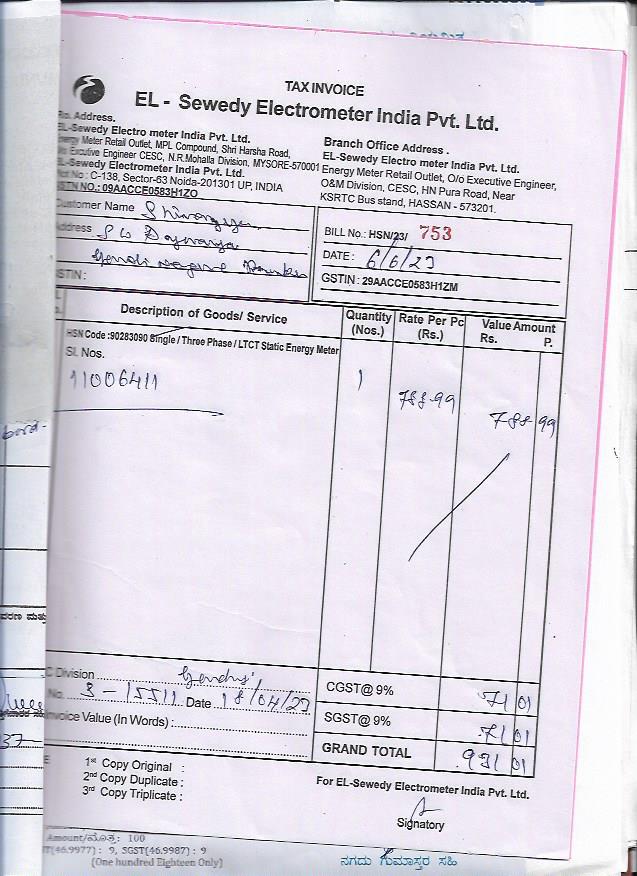 TAX INVOICE
EL - Sewedy Electrometer India Pvt. Ltd.
Address.
EL-Sewedy Electro meter India Pvt. Ltd.
Energy Meter Retail Outlet, MPL Compound, Shri Harsha Road,
Excutive Engineer CESC, N.R.Mohalla Division, MYSORE-570001
EL-Sewedy Electrometer India Pvt. Ltd.
No : C-138, Sector-63 Noida-201301 UP, INDIA
GSTN NO.: 09AACCE0583H1ZO
Branch Office Address .
EL-Sewedy Electro meter India Pvt. Ltd.
Energy Meter Retail Outlet, O/o Executive Engineer,
O&M Division, CESC, HN Pura Road, Near
KSRTC Bus stand, HASSAN - 573201.
Customer Name
Address
GSTIN :
BILL No.: HSN/23/ 753
DATE : 6/6/23
GSTIN : 29AACCE0583H1ZM
Description of Goods/ Service
Quantity (Nos.)
Rate Per Pc (Rs.)
Value Amount
Rs. P.
HSN Code :90283090 Single / Three Phase / LTCT Static Energy Meter
Sl. Nos.
11006411 1 788-99 788 99
Division
No. 3-15511 Date 18/04/23
Invoice Value (In Words) :
CGST@ 9% 71 01
SGST@ 9% 71 01
GRAND TOTAL 931 01
1st Copy Original :
2nd Copy Duplicate :
3rd Copy Triplicate :
For EL-Sewedy Electrometer India Pvt. Ltd.
Signatory
Amount/ಮೊತ್ತ: 100
(46.9977) : 9, SGST(46.9987) : 9
(One hundred Eighteen Only)
ನಗದು ಗುಮಾಸ್ತರ ಸಹಿ
37